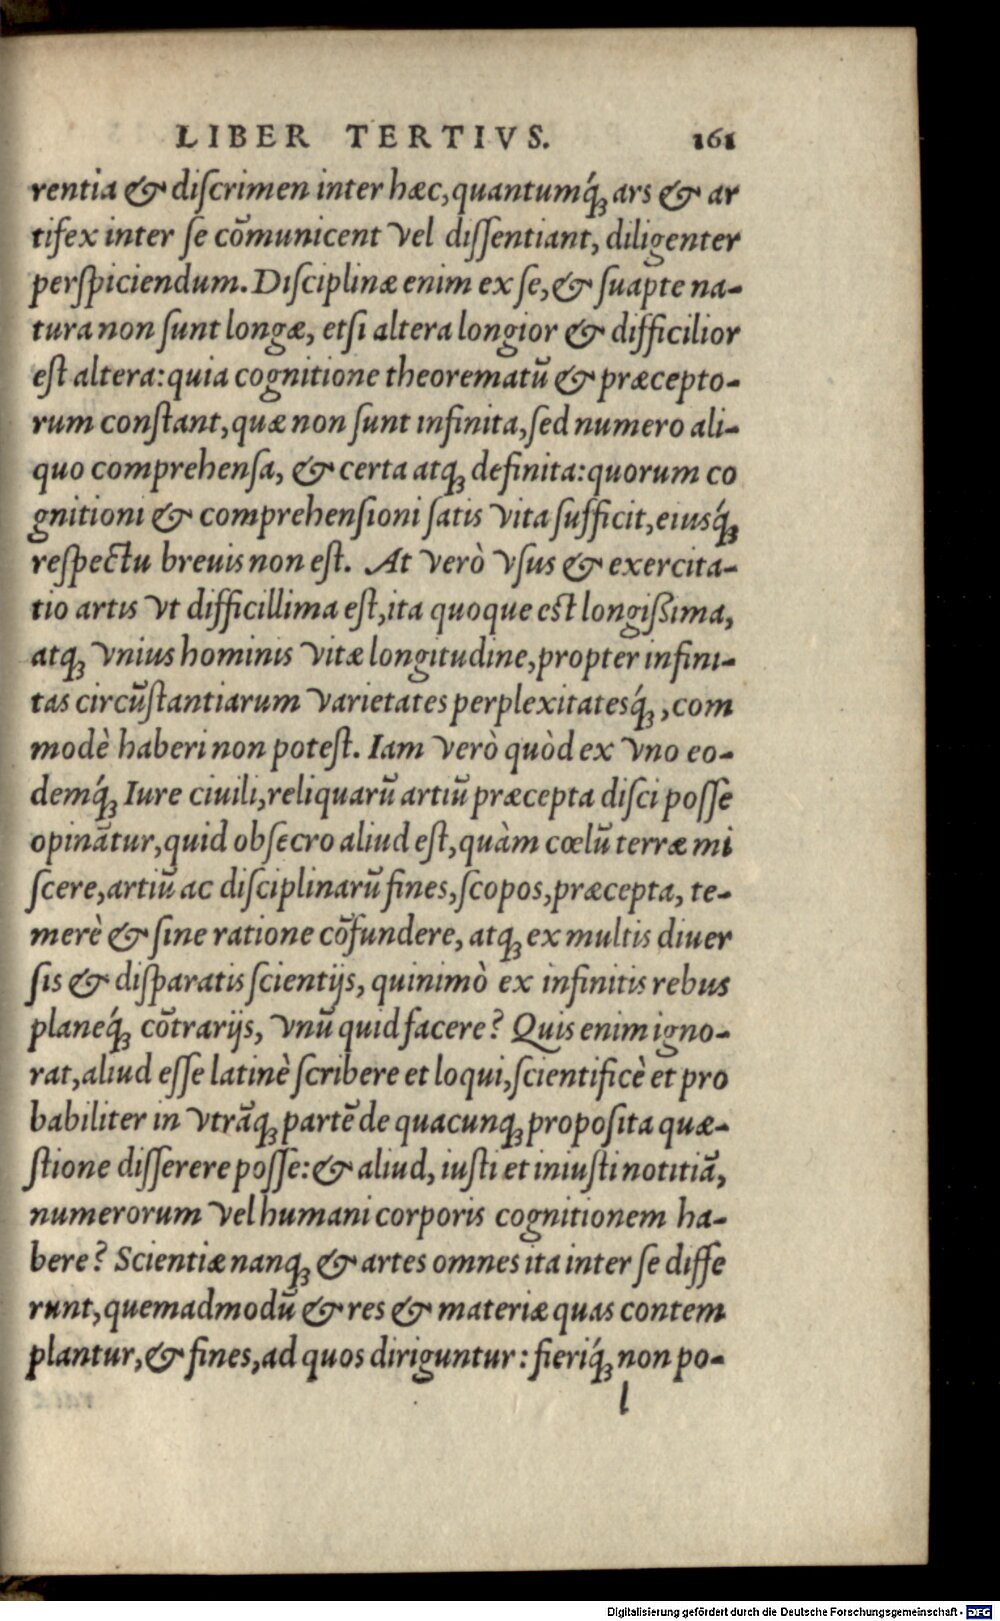 LIBER TERTIVS. 161
rentia & diſcrimen inter hæc, quantumq́ꝫ ars & ar
tifex inter ſe cōmunicent vel diſſentiant, diligenter
perſpiciendum. Diſciplinæ enim ex ſe, & ſuapte na-
tura non ſunt longæ, etſi altera longior & difficilior
eſt altera: quia cognitione theorematū & præcepto-
rum conſtant, quæ non ſunt infinita, ſed numero ali-
quo comprehenſa, & certa atqꝫ definita: quorum co
gnitioni & comprehenſioni ſatis vita ſufficit, eiusq́ꝫ
reſpectu breuis non eſt. At verò vſus & exercita-
tio artis vt difficillima eſt, ita quoque est longiſsima,
atqꝫ vnius hominis vitæ longitudine, propter infini-
tas circūſtantiarum varietates perplexitatesq́ꝫ, com
modè haberi non poteſt. Iam verò quòd ex vno eo-
demq́ꝫ Iure ciuili, reliquarū artiū præcepta diſci poſſe
opinātur, quid obſecro aliud eſt, quàm cœlū terræ mi
ſcere, artiū ac diſciplinarū fines, ſcopos, præcepta, te-
merè & ſine ratione cōfundere, atqꝫ ex multis diuer
ſis & diſparatis ſcientijs, quinimò ex infinitis rebus
planeq́ꝫ cōtrarijs, vnū quid facere? Quis enim igno-
rat, aliud eſſe latinè ſcribere et loqui, ſcientificè et pro
babiliter in vtrāqꝫ partē de quacunqꝫ propoſita quæ-
ſtione diſſerere poſſe: & aliud, iuſti et iniuſti notitiā,
numerorum vel humani corporis cognitionem ha-
bere? Scientiæ nanqꝫ & artes omnes ita inter ſe diffe
runt, quemadmodū & res & materiæ quas contem
plantur, & fines, ad quos diriguntur: fieriq́ꝫ non po-
l
Digitalisierung gefördert durch die Deutsche Forschungsgemeinschaft - DFG